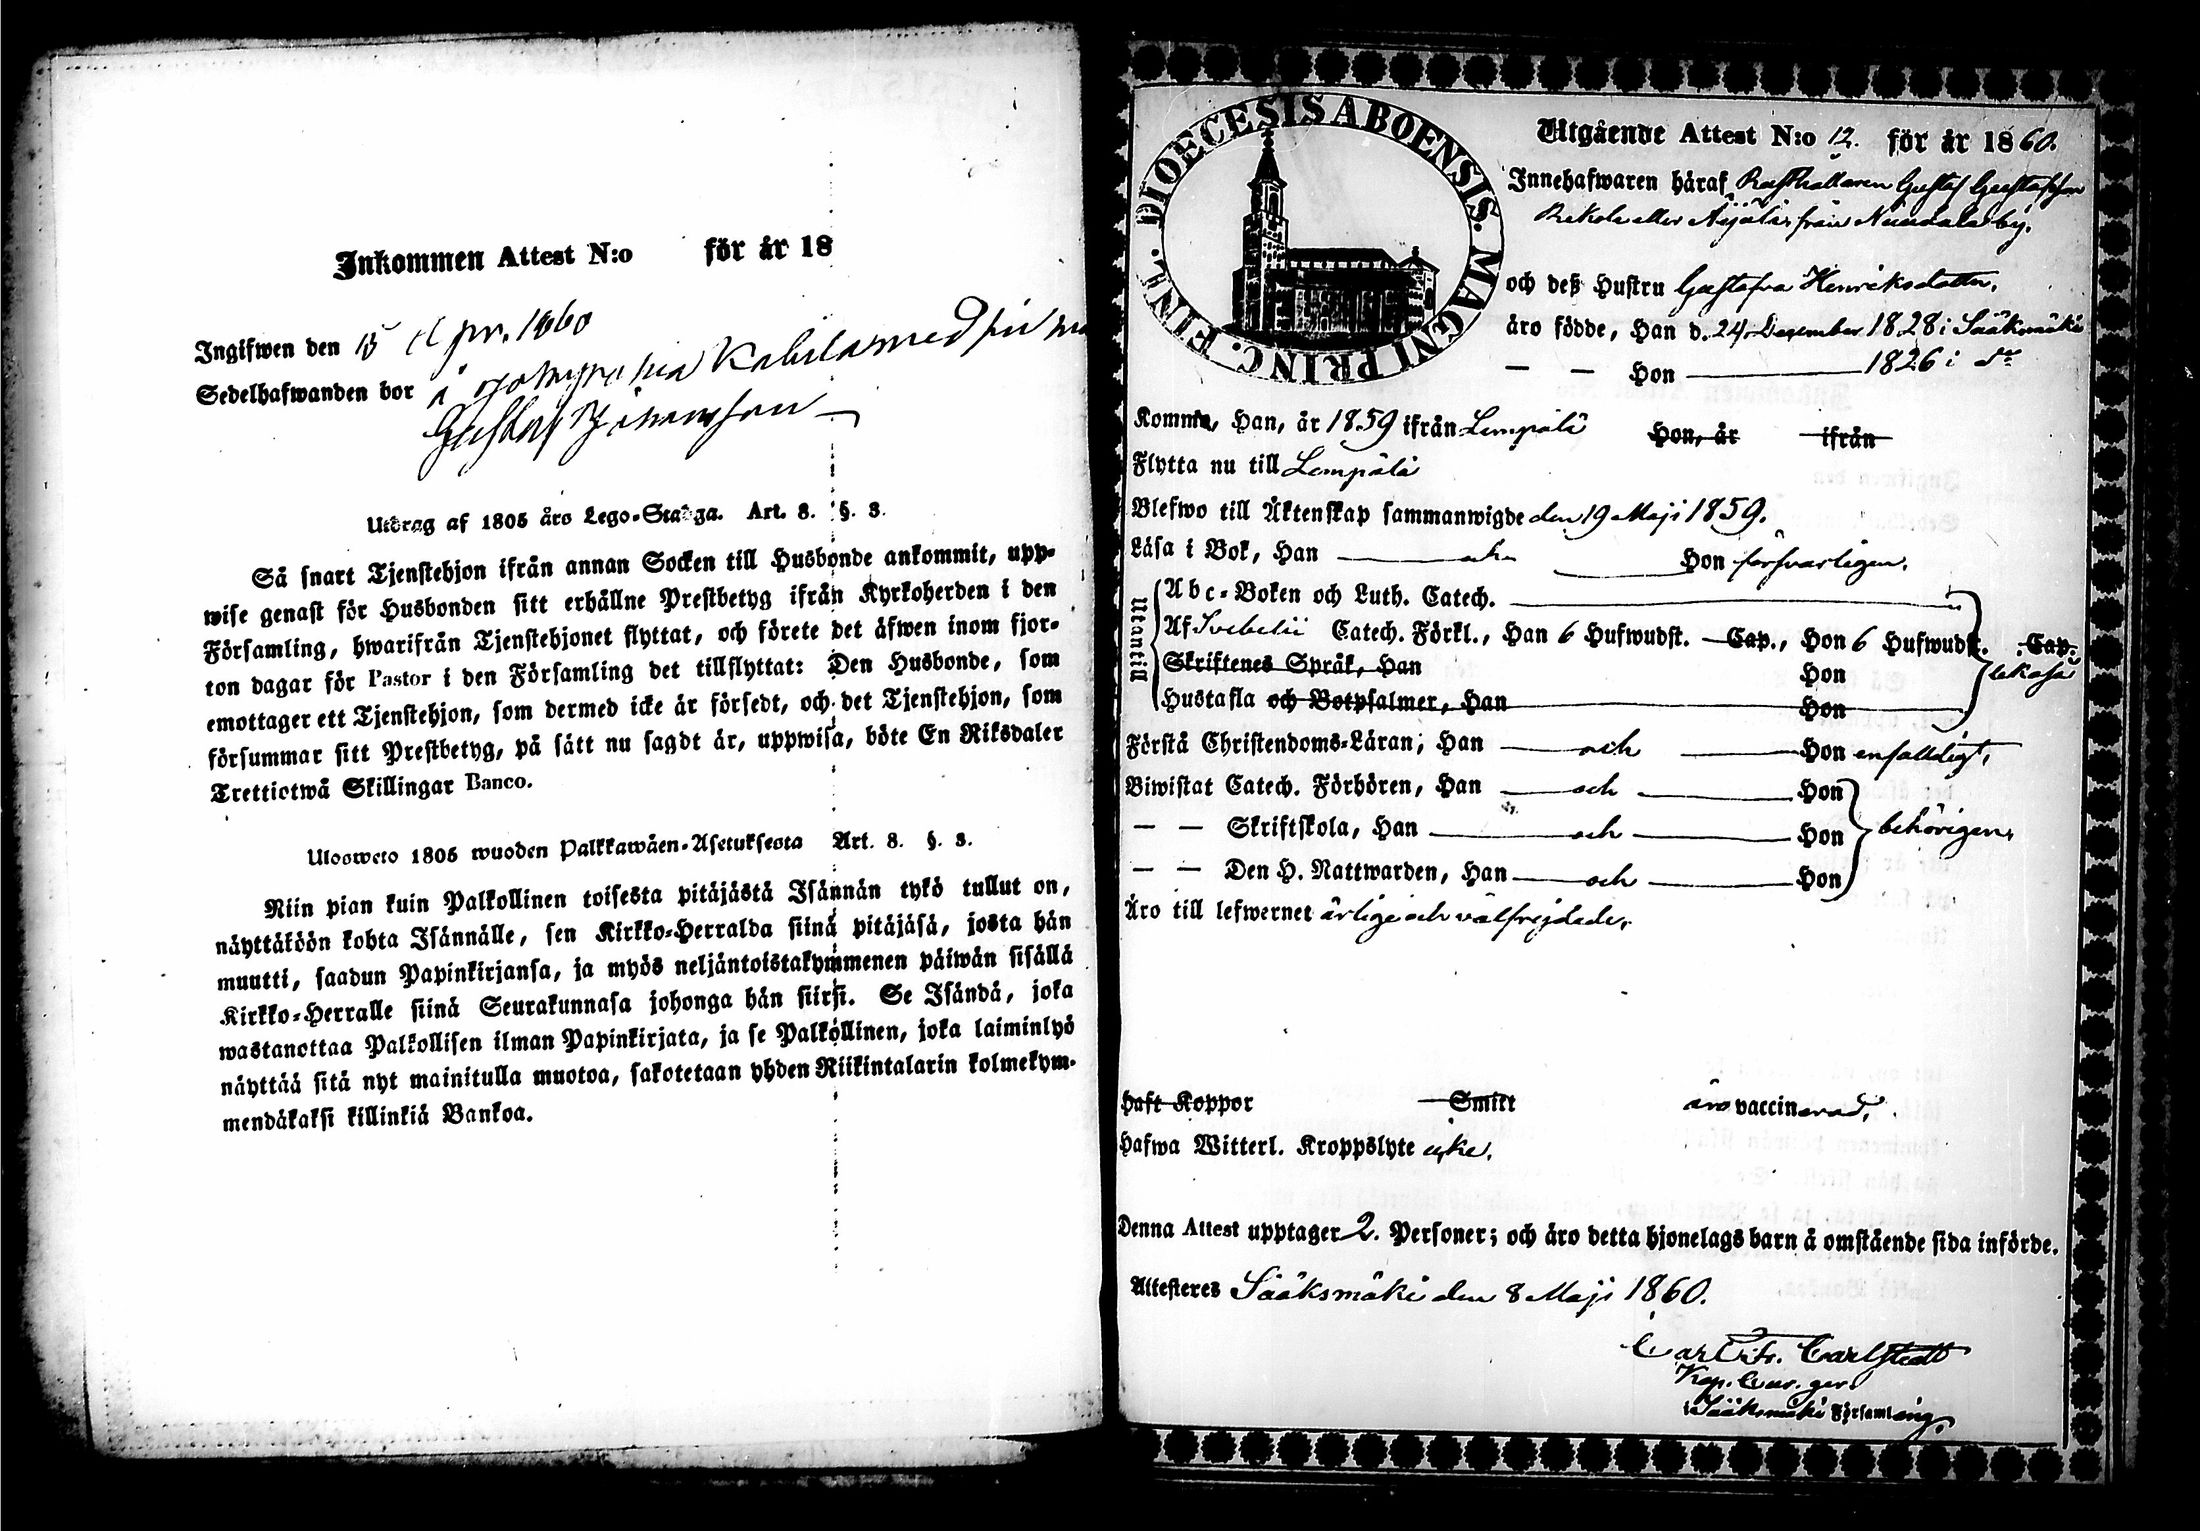 Inkommen Attest N:o för år 18
Ingifwen den 15 Apr. 1860
Sedelhafwanden bor å
Gustaf Johansson
Utdrag af 1805 års Lego-Stadga. Art. 8. §. 3.
Så snart Tjenstehjon ifrån annan Socken till Husbonde ankommit, upp-
wise genast för Husbonden sitt erhållne Prestbetyg ifrån Kyrkoherden i den
Församling, hwarifrån Tjenstehjonet flyttat, och förete det äfwen inom fjor-
ton dagar för Pastor i den Församling det tillflyttat: Den Husbonde, som
emottager ett Tjenstehjon, som dermed icke är försedt, och det Tjenstehjon, som
försummar sitt Prestbetyg, på sätt nu sagdt är, uppwisa, böte En Riksdaler
Trettiotwå Skillingar Banco.
Ulosweto 1805 wuoden Palkkawäen-Asetuksesta Art. 8. §. 3.
Niin pian kuin Palkollinen toisesta pitäjästä Isännän tykö tullut on,
näyttäköön kohta Isännälle, sen Kirkko-Herralda siinä pitäjäsä, josta hän
muutti, saadun Papinkirjansa, ja myös neljäntoistakymmenen päiwän sisällä
Kirkko-Herralle siinä Seurakunnasa johonga hän siirsi. Se Isändä, joka
wastanottaa Palkollisen ilman Papinkirjata, ja se Palkollinen, joka laiminlyö
näyttää sitä nyt mainitulla muotoa, sakotetaan yhden Riikintalarin kolmekym-
mendäkaksi killinkiä Bankoa.
DIOECESIS ABOENSIS. MAGNI PRINC. FINL.
Utgående Attest N:o 12. för år 1860.
Innehafwaren häraf Rusthållaren Gustaf Gustafsson
Rekola eller Äijälä från Nuudala by.
och deß Hustru Gustafva Henriksdotter,
äro födde, Han d. 24 December 1828 i Sääksmäki
— — Hon 1826 i do
Komne, Han, år 1859 ifrån Lempälä Hon, år ifrån
Flytta nu till Lempälä
Blefwo till Äktenskap sammanwigde den 19 Maji 1859.
Läsa i Bok, Han och Hon försvarligen.
Utantill
Abc-Boken och Luth. Catech.
Af Svebelii Catech. Förkl., Han 6 Hufwudst. Cap., Hon 6 Hufwudst. Cap.
Skriftenes Språk, Han Hon
Hustafla och Botpsalmer, Han Hon
Förstå Christendoms-Läran; Han och Hon enfaldigt,
Biwistat Catech. Förhören, Han och Hon
— — Skriftskola, Han och Hon behörigen,
— — Den H. Nattwarden, Han och Hon
Äro till lefwernet ärlige och välfrejdade,
Haft Koppor Smitt äro vaccinerad,
Hafwa Witterl. Kroppslyte icke.
Denna Attest upptager 2. Personer; och äro detta hjonelags barn å omstående sida införde.
Attesteras Sääksmäki den 8 Maji 1860.
Carl Fr. Carlstedt
Kap.
i Sääksmäki Församling.